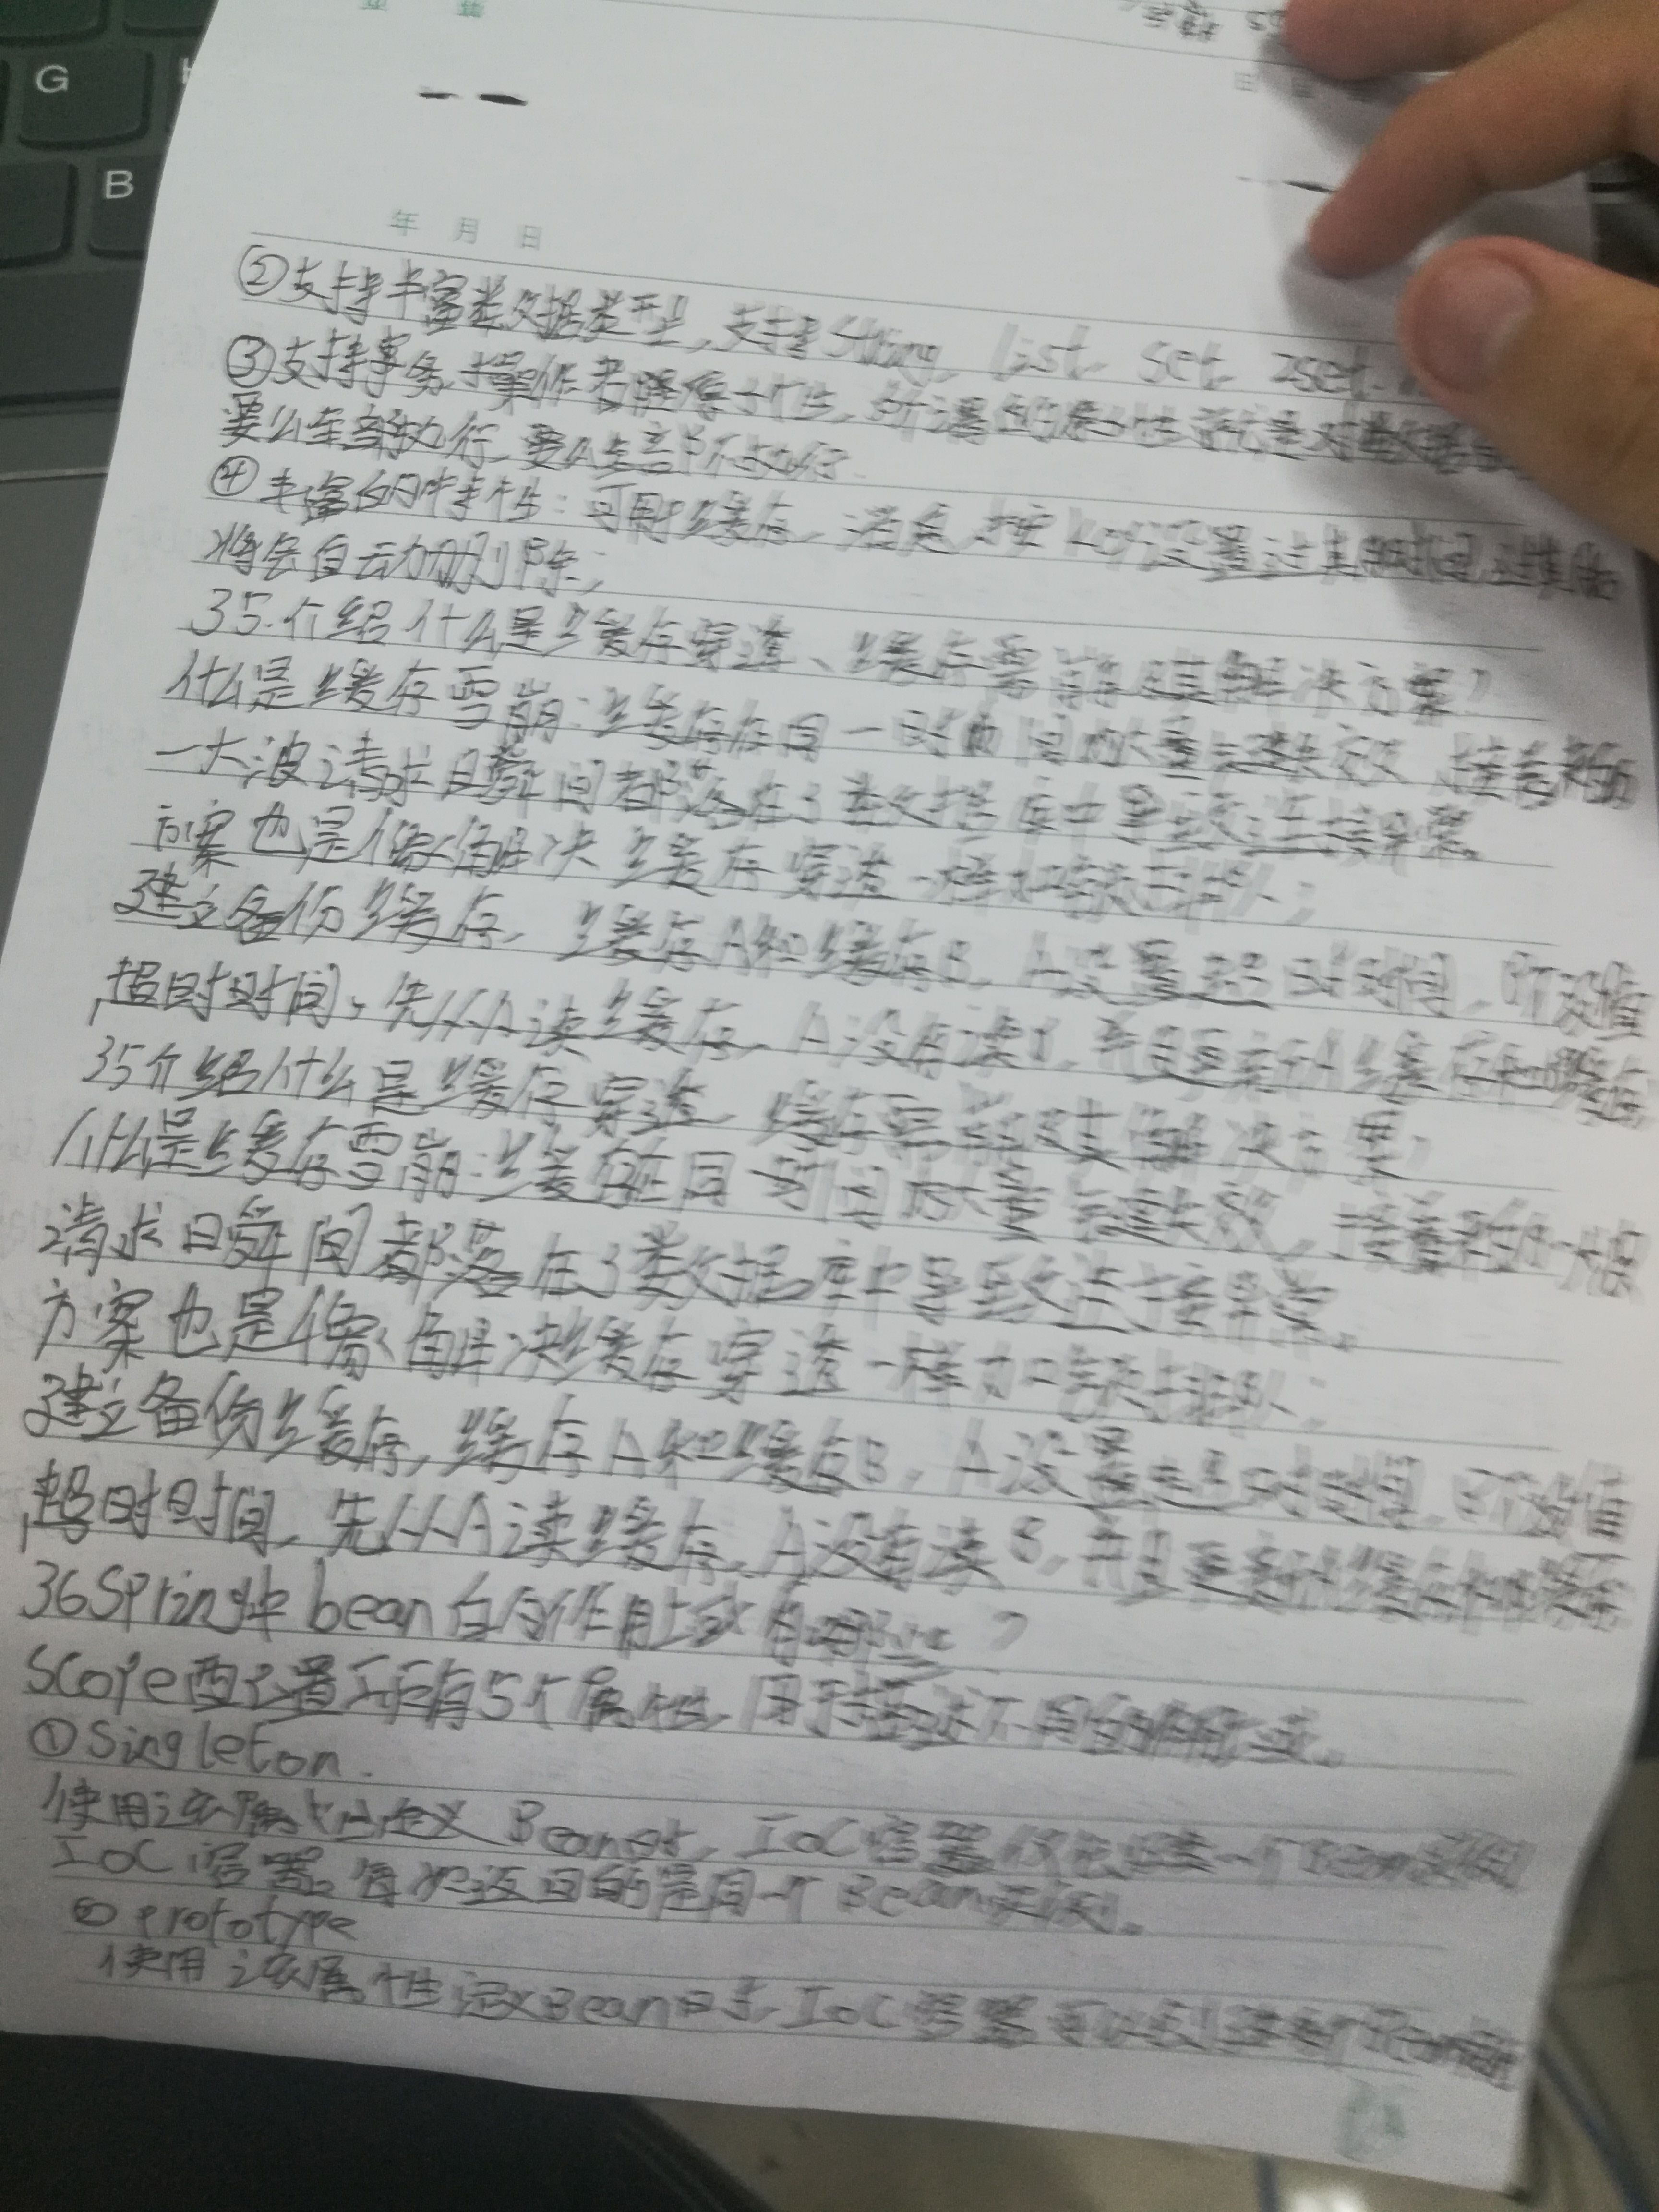 G
B
年 月 日
②支持丰富数据类型,支持String, list, set, zset,
③支持事务,操作都是原子性,所谓的原子性就是对数据
要么全部执行,要么全部不执行.
④丰富的特性:可用于缓存,消息,按key设置过期时间,过期后
将会自动删除;
35.介绍什么是缓存穿透、缓存雪崩及其解决方案?
什么是缓存雪崩:缓存在同一时间内大量键失效,接着来的
一大波请求瞬间都落在了数据库中导致连接异常。
方案也是像解决缓存穿透一样加锁排队;
建立备份缓存,缓存A和缓存B,A设置超时时间,B不设值
超时时间,先从A读缓存,A没有读B,并且更新A缓存和B缓存
35介绍什么是缓存穿透,缓存雪崩及其解决方案?
什么是缓存雪崩:缓存在同一时间内大量键失效,接着来的一大波
请求瞬间都落在了数据库中导致连接异常。
方案也是像解决缓存穿透一样加锁排队;
建立备份缓存,缓存A和缓存B,A设置超时时间,B不设值
超时时间,先从A读缓存,A没有读B,并且更新A缓存和B缓存
36Spring中bean的作用域有哪些?
Scope配置项有5个属性,用于描述不同的作用域。
①Singleton.
使用该属性定义Bean时,IoC容器仅创建一个Bean实例
IoC容器每次返回的是同一个Bean实例。
②prototype
使用该属性定义Bean时,IoC容器可以创建多个Bean实例